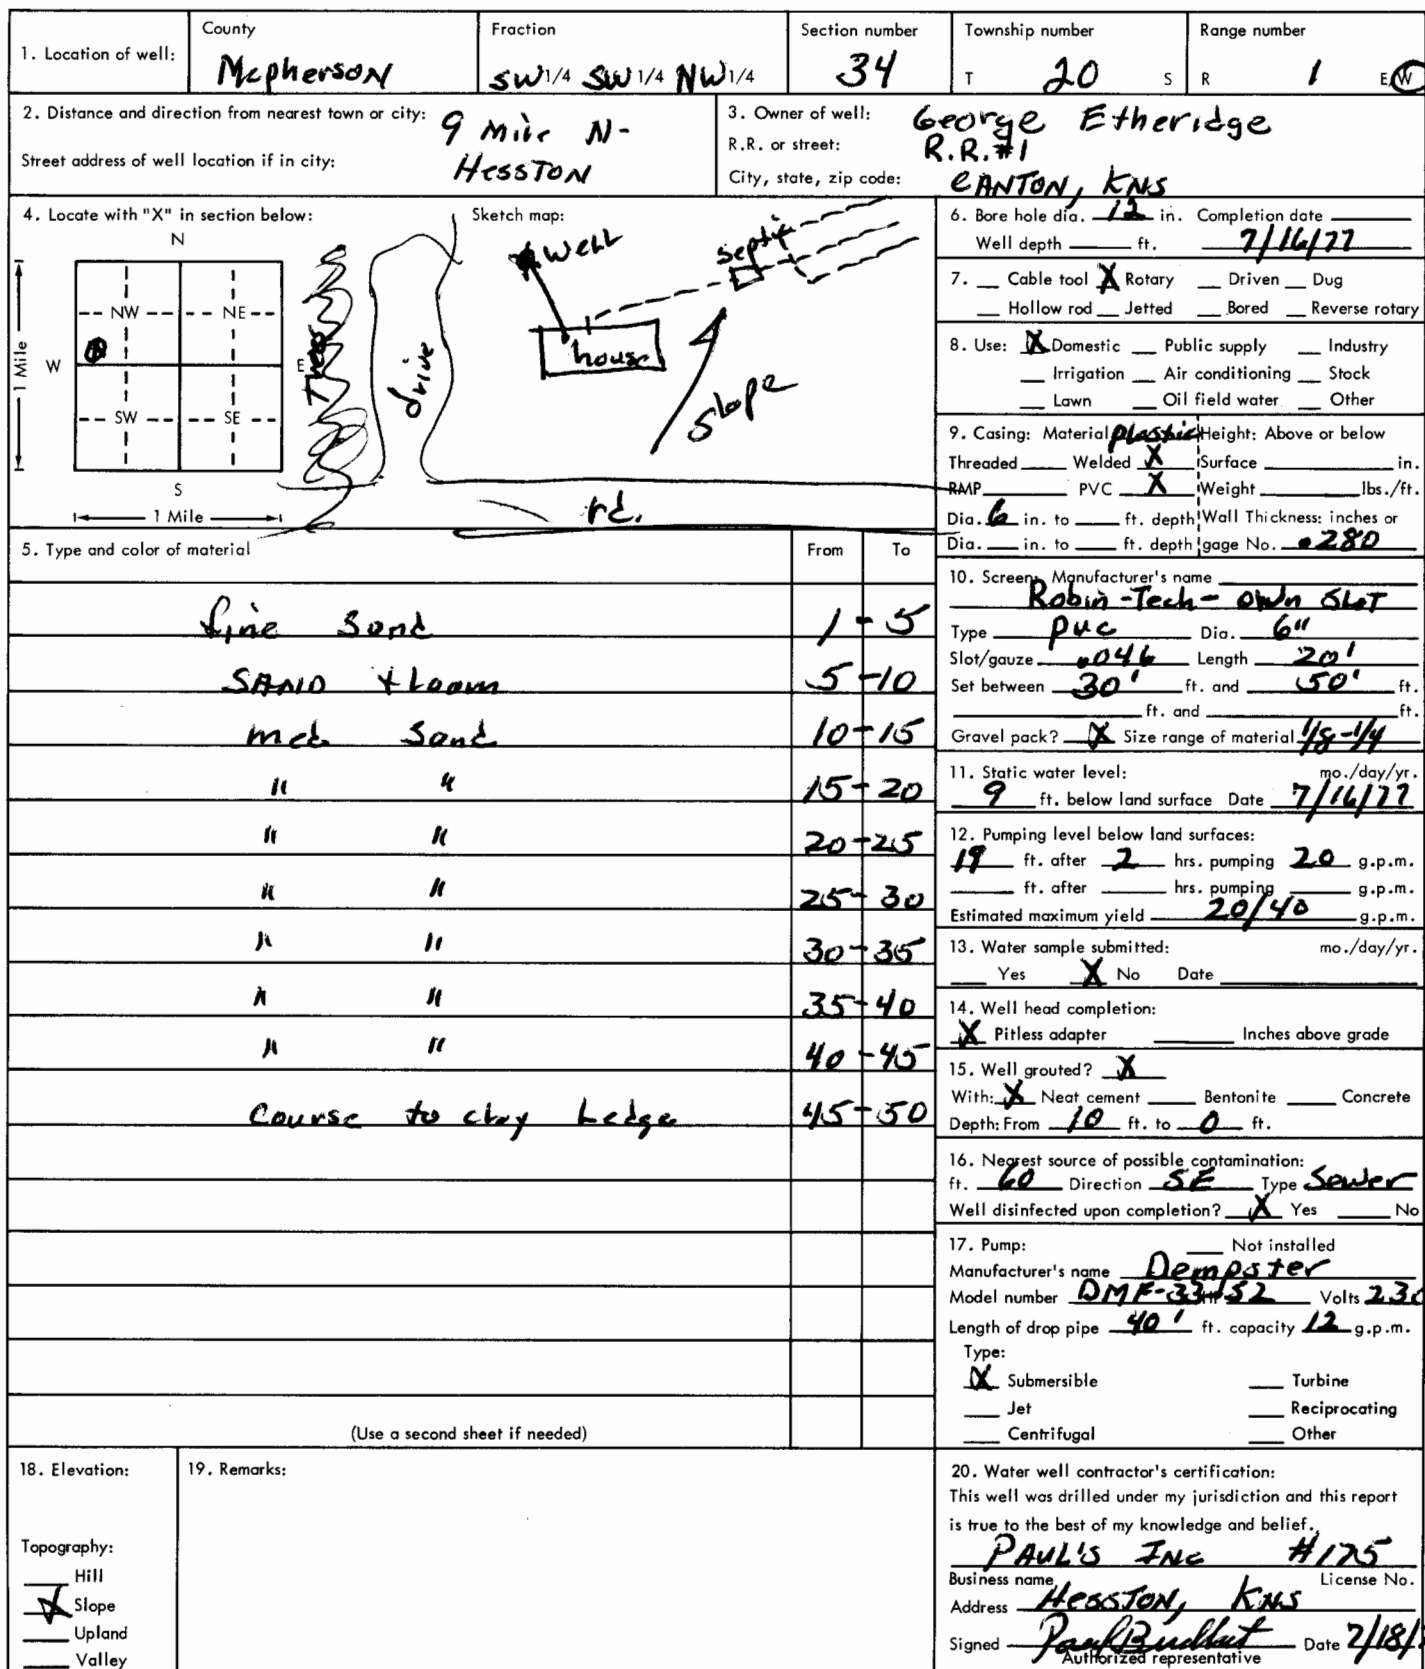 1. Location of well:
County
McPherson
Fraction
SW 1/4 SW 1/4 NW 1/4
Section number
34
Township number
T 20 S
Range number
R 1 E W
2. Distance and direction from nearest town or city: 9 Mile N-
Street address of well location if in city: HESSTON
3. Owner of well: George Etheridge
R.R. or street: R.R.#1
City, state, zip code: CANTON, KNS
4. Locate with "X" in section below:
N
NW NE
W E
SW SE
S
1 Mile
1 Mile
Sketch map:
Trees
drive
well
septic
house
slope
rd.
5. Type and color of material From To
fine Sand 1 - 5
SAND + Loam 5 - 10
med Sand 10 - 15
" " 15 - 20
" " 20 - 25
" " 25 - 30
" " 30 - 35
" " 35 - 40
" " 40 - 45
Course to clay Ledge 45 - 50
(Use a second sheet if needed)
6. Bore hole dia. 12 in. Completion date
Well depth ft. 7/16/77
7. Cable tool X Rotary Driven Dug
Hollow rod Jetted Bored Reverse rotary
8. Use: X Domestic Public supply Industry
Irrigation Air conditioning Stock
Lawn Oil field water Other
9. Casing: Material plastic Height: Above or below
Threaded Welded X Surface in.
RMP PVC X Weight lbs./ft.
Dia. 6 in. to ft. depth Wall Thickness: inches or
Dia. in. to ft. depth gage No. .280
10. Screen: Manufacturer's name
Robin-Tech- own SLOT
Type PVC Dia. 6"
Slot/gauze .046 Length 20'
Set between 30' ft. and 50' ft.
ft. and ft.
Gravel pack? X Size range of material 1/8-1/4
11. Static water level: mo./day/yr.
9 ft. below land surface Date 7/16/77
12. Pumping level below land surfaces:
19 ft. after 2 hrs. pumping 20 g.p.m.
ft. after hrs. pumping g.p.m.
Estimated maximum yield 20/40 g.p.m.
13. Water sample submitted: mo./day/yr.
Yes X No Date
14. Well head completion:
X Pitless adapter Inches above grade
15. Well grouted? X
With: X Neat cement Bentonite Concrete
Depth: From 10 ft. to 0 ft.
16. Nearest source of possible contamination:
ft. 60 Direction SE Type Sewer
Well disinfected upon completion? X Yes No
17. Pump: Not installed
Manufacturer's name Dempster
Model number DMF-33-52 Volts 230
Length of drop pipe 40' ft. capacity 12 g.p.m.
Type:
X Submersible Turbine
Jet Reciprocating
Centrifugal Other
18. Elevation:
Topography:
Hill
X Slope
Upland
Valley
19. Remarks:
20. Water well contractor's certification:
This well was drilled under my jurisdiction and this report
is true to the best of my knowledge and belief.
PAUL'S INC #175
Business name License No.
Address HESSTON, KNS
Signed Paul Date 7/18/
Authorized representative